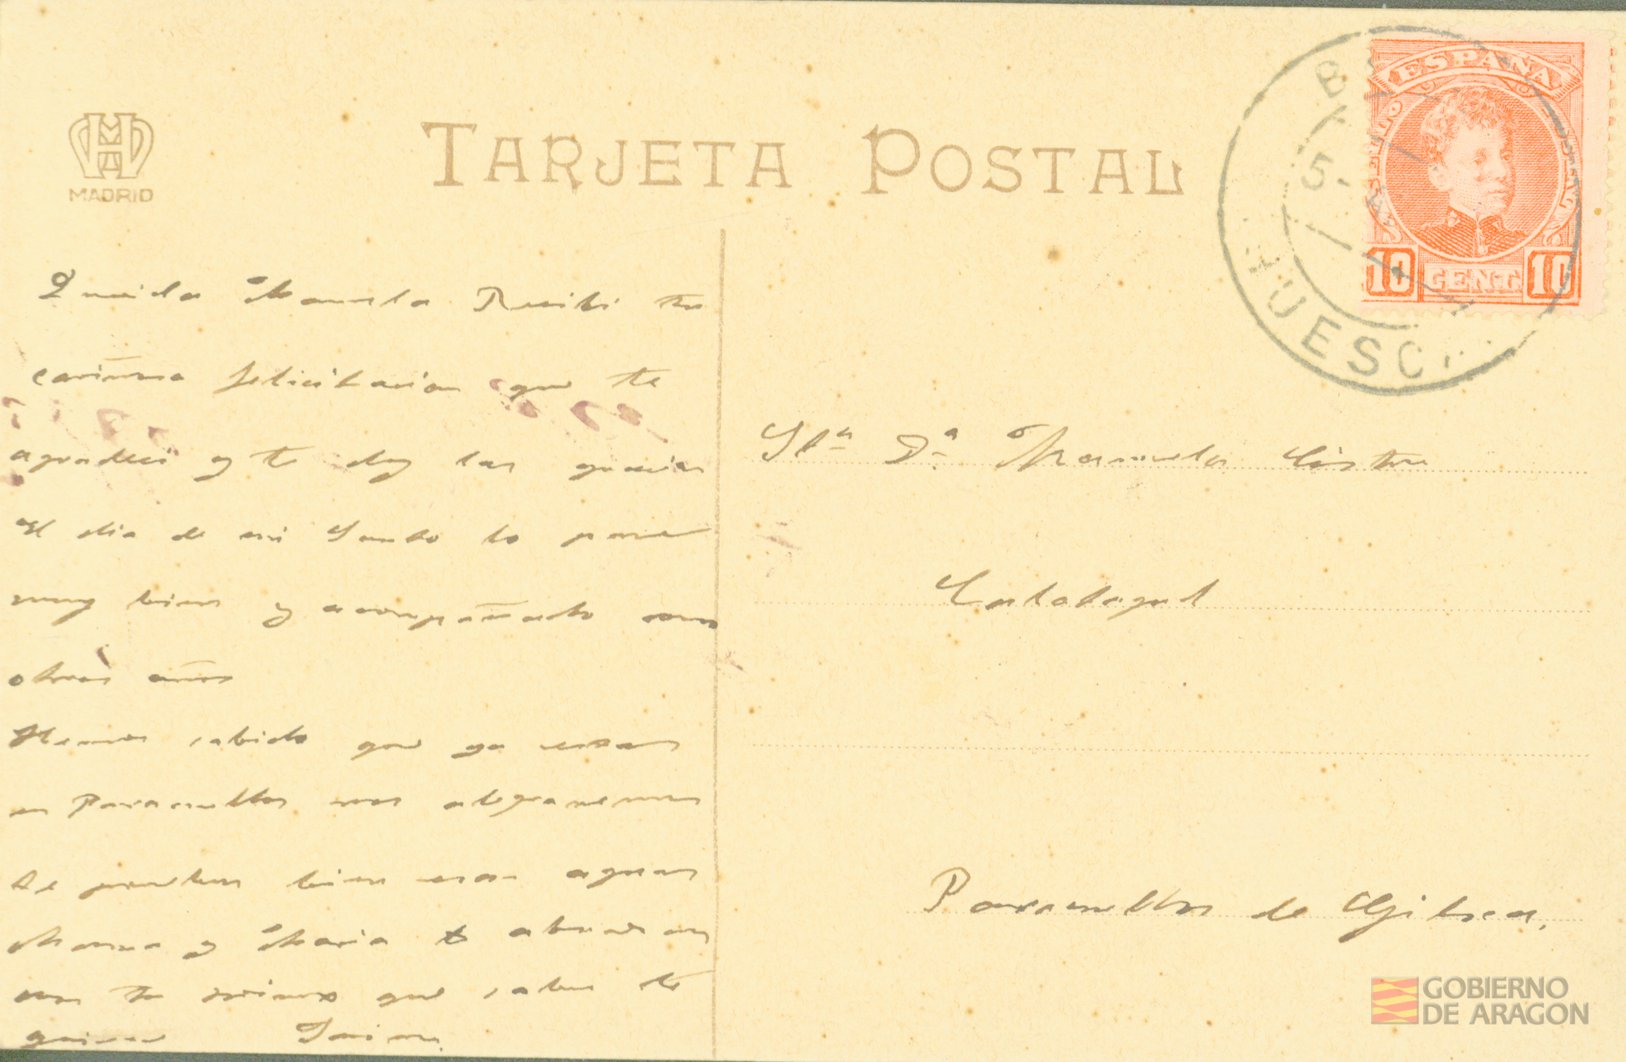 TARJETA POSTAL
MADRID
ESPAÑA
10 CENT. 10
5-
HUESC
Querida Manuela Recibi tu
cariñosa felicitacion que te
agradeci y te doy las gracias
El dia de mi Santo lo pase
muy bien y acompañado como
otros años
Hemos sabido que ya estas
en Paracuellos nos alegraremos
te prueben bien esas aguas
Mama y Maria te abrazan
con tu primo que sabes te
quiere Jaime
Sta Da Manuela
Calatayud
Paracuellos de Giloca.
GOBIERNO
DE ARAGON